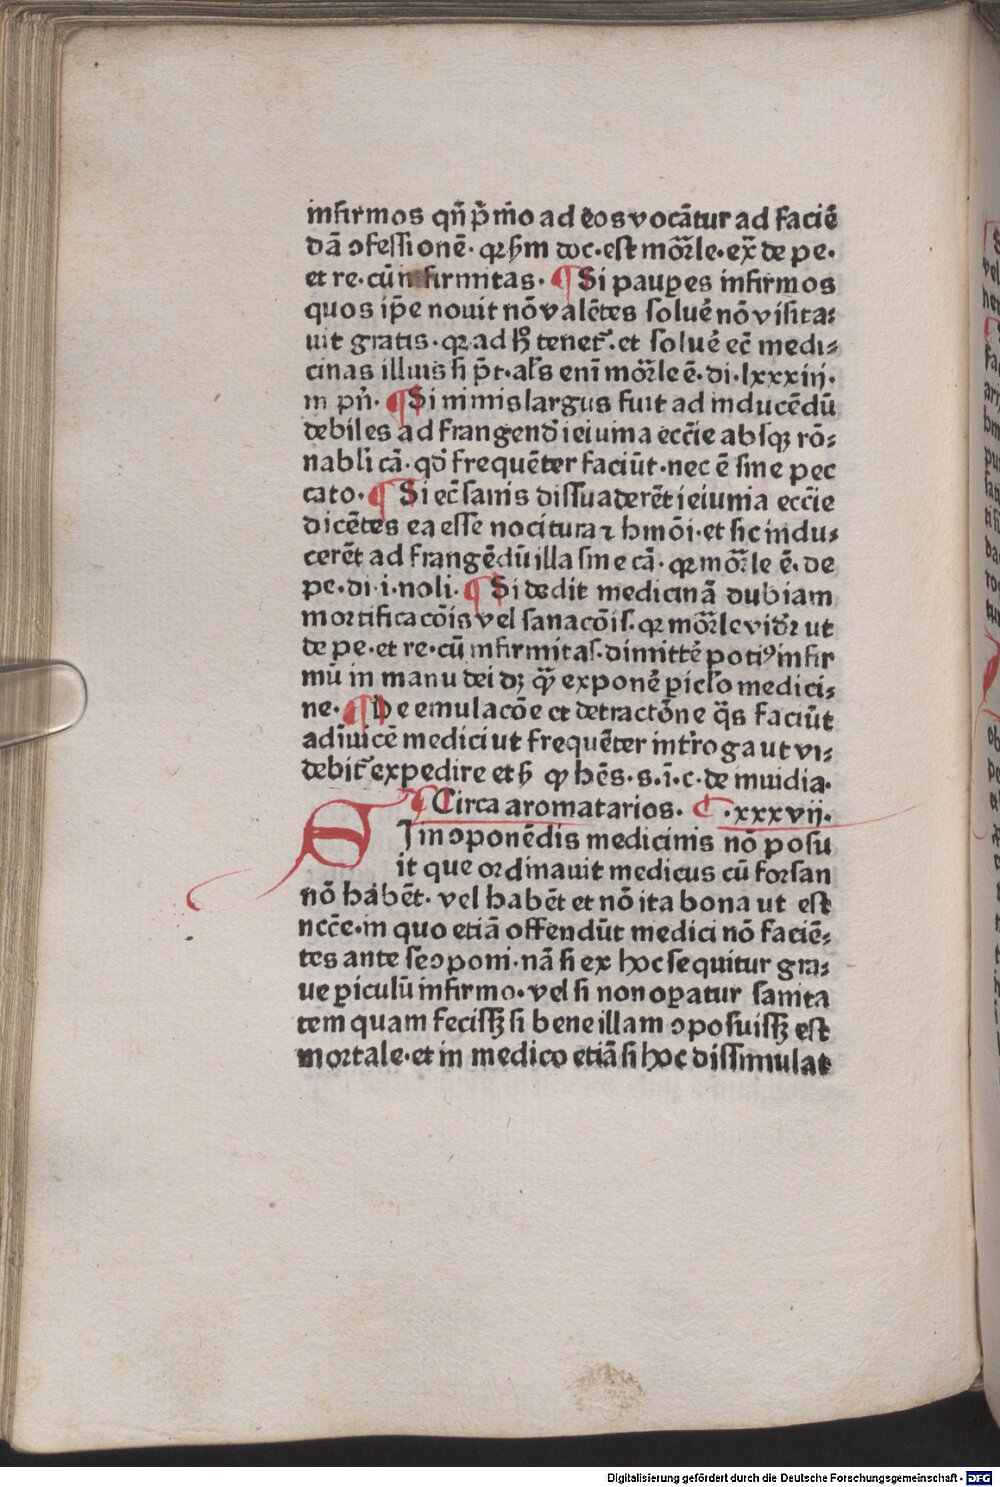 infirmos qñ p̄mo ad eos vocātur ad faciē
dā ↄfessionē· qꝛ ẜm doc·est mōrle·ex̄ de pe·
et re·cū infirmitas· ¶ Si pauꝑes infirmos
quos ip̄e nouit nō valētes soluē nō visita⸗
uit gratis·qꝛ ad hͦ tenet᷑·et soluē ec̄ medi⸗
cinas illius si p̄t·als eni mōrle ē·di·lxxxiij·
in pñ· ¶ Si nimis largus fuit ad inducēdū
debiles ad frangend̄ ieiunia ecc̄ie absqꝫ rō⸗
nabli cā·qd̄ frequēter faciūt·nec ē sine pec
cato· ¶ Si ec̄ sanis dissuaderēt ieiunia ecc̄ie
dicētes ea esse nocitura ⁊ hmōi·et sic indu⸗
cerēt ad frangēdū illa sine cā·qꝛ mōrle ē·de
pe·di·i·noli· ¶ Si dedit medicinā dubiam
mortificacōis vel sanacōis·qꝛ mōrle vid̄ꝛ ut
de pe·et re·cū infirmitas·dimittē̄ potiꝰ infir
mū in manu dei dꝫ q̄ꝫ exponē ꝑiclo medici⸗
ne· ¶ De emulacōe et detractōne q̄s faciūt
adīuicē medici ut frequēter int̄roga ut vi⸗
debit᷑ expedire et ħ ꝙ hēs·s·ī·c·de inuidia·
¶ Circa aromatarios· C ·xxxvij·
S Jin ↄponēdis medicinis nō posu
it que ordinauit medicus cū forsan
nō habēt· vel habēt et nō ita bona ut est
ncc̄e·in quo etiā offendūt medici nō faciē⸗
tes ante se ↄponi·nā si ex hoc sequitur gra⸗
ue ꝑiculū infirmo·vel si non oꝑatur sanita
tem quam fecissꝫ si bene illam ↄposuissꝫ est
mortale·et in medico etiā si hoc dissimulat
Digitalisierung gefördert durch die Deutsche Forschungsgemeinschaft - DFG